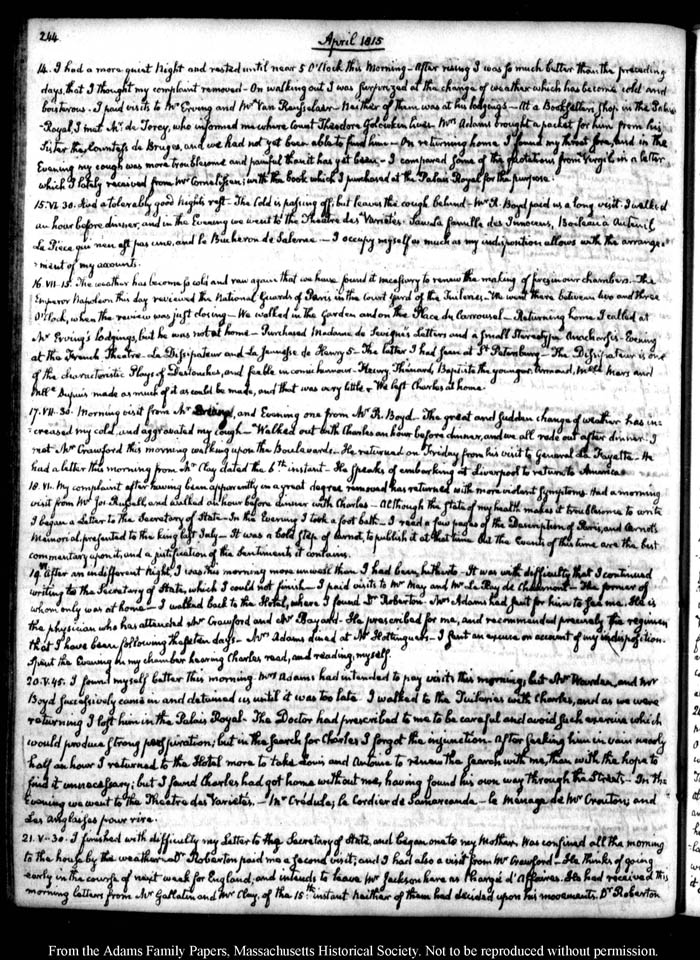 244
April 1815
14. I had a more quiet Night and rested until near 5 O'Clock this Morning - After rising I was so much better than the preceding
days, that I thought my complaint removed - On walking out I was surprized at the change of weather which has become cold and
boisterous - I paid visits to Mr Erving and Mr Van Rensselaer - Neither of them was at his lodgings - At a Booksellers Shop in the Palais
Royal, I met Mr. de Torcy, who informed me where Count Theodore Golovkin lives. Mrs Adams brought a packet for him from his
Sister the Countess de Bruges, and we had not yet been able to find him - On returning home I found my throat sore, and in the
Evening my cough was more troublesome and painful than it has yet been - I compared some of the quotations from Virgil in a letter
which I lately received from Mr Cornelissen; with the book which I purchased at the Palais Royal for the purpose.
15. VI. 30. Had a tolerably good Nights rest - The Cold is passing off; but leaves the cough behind - Mr R. Boyd paid us a long visit. I walked
an hour before dinner, and in the Evening we went to the Theatre des Varietés. famille des Innocens, Boileau à Auteuil
La Piece qui n'en est pas une, and le Bucheron de Salerne - I occupy myself as much as my indisposition allows with the arrange-
-ment of my accounts.
16. VII. 15. The weather has become so cold and raw again that we have found it necessary to renew the making of fires in our chambers. The
Emperor Napoleon this day reviewed the National Guards of Paris in the Court yard of the Tuileries - We went there between two and three
O'Clock, when the review was just closing - We walked in the Garden and on the Place de Carrousel - Returning home I called at
Mr Erving's lodgings, but he was not at home - Purchased Madame de Sevigné's Letters and a small Stereotype Anacharsis - Evening
at the French Theatre - Le Dissipateur and La Jeunesse de Henry 5 - The latter I had seen at St Petersburg - The Dissipateur is one
of the characteristic Plays of Destouches, and feeble in comic humour. Fleury, Thénard, Baptiste the younger, Armand, Mlle Mars and
Mlle Dupuis made as much of it as could be made, and that was very little - We left Charles at home.
17. VII. 30. Morning visit from Mr and Evening one from Mr R. Boyd - The great and sudden change of weather has in-
creased my cold, and aggravated my cough - Walked out with Charles an hour before dinner, and we all rode out after dinner. I
met Mr Crawford this morning walking upon the Boulevards - He returned on Friday from his visit to General La Fayette - He
had a letter this morning from Mr Clay dated the 6th instant - He speaks of embarking at Liverpool to return to America
18. VI. My complaint after having been apparently in a great degree removed has returned with more violent symptoms. Had a morning
visit from Mr Jos. Russell, and walked an hour before dinner with Charles - Although the state of my health makes it troublesome to write
I began a Letter to the Secretary of State - In the Evening I took a foot bath - I read a few pages of the Description of Paris, and Carnot's
Memorial, presented to the king last July - It was a bold step of Carnot, to publish it at that time. But the Events of this time are the best
commentary upon it, and a justification of the sentiments it contains.
19. After an indifferent Night, I was this morning more unwell than I had been hitherto - It was with difficulty that I continued
writing to the Secretary of State, which I could not finish - I paid visits to Mr May and Mr Le Ray de Chaumont - The former of
whom only was at home - I walked back to the Hotel, where I found Dr Roberton - Mrs Adams had sent for him to see me. He is
the physician who has attended Mr Crawford and Mr Bayard - He prescribed for me, and recommended precisely the regimen
that I have been following these ten days - Mrs Adams dined at Mr Hottinguer's - I sent an excuse on account of my indisposition.
Spent the Evening in my chamber hearing Charles read, and reading myself.
20. V. 45. I found myself better this morning. Mrs Adams had intended to pay visits this morning; but Mr Warden, and Mr
Boyd successively came in and detained us until it was too late. I walked to the Tuileries with Charles, and as we were
returning I lost him in the Palais Royal - The Doctor had prescribed to me to be careful and avoid such exercise which
would produce strong perspiration; but in the search for Charles I forgot the injunction - After seeking him in vain nearly
half an hour I returned to the Hotel more to take Louis and Antoine to renew the search with me, than with the hope to
find it unnecessary; but I found Charles had got home without me, having found his own way through the Streets - In the
Evening we went to the Theatre des Varietés - Mr Crédule; le Cordier de Samarcande - le menage de Mr Crouton; and
Les Anglaises pour rire.
21. V. 30. I finished with difficulty my Letter to the Secretary of State and began one to my Mother. Was confined all the morning
to the house by the weather - Dr Roberton paid me a second visit; and I had also a visit from Mr Crawford - He thinks of going
early in the course of next week for England; and intends to leave Mr Jackson here as Chargé d'Affaires. He had received this
morning letters from Mr Gallatin and Mr Clay, of the 15th instant. Neither of them had decided upon his movements. Dr Roberton
From the Adams Family Papers, Massachusetts Historical Society. Not to be reproduced without permission.